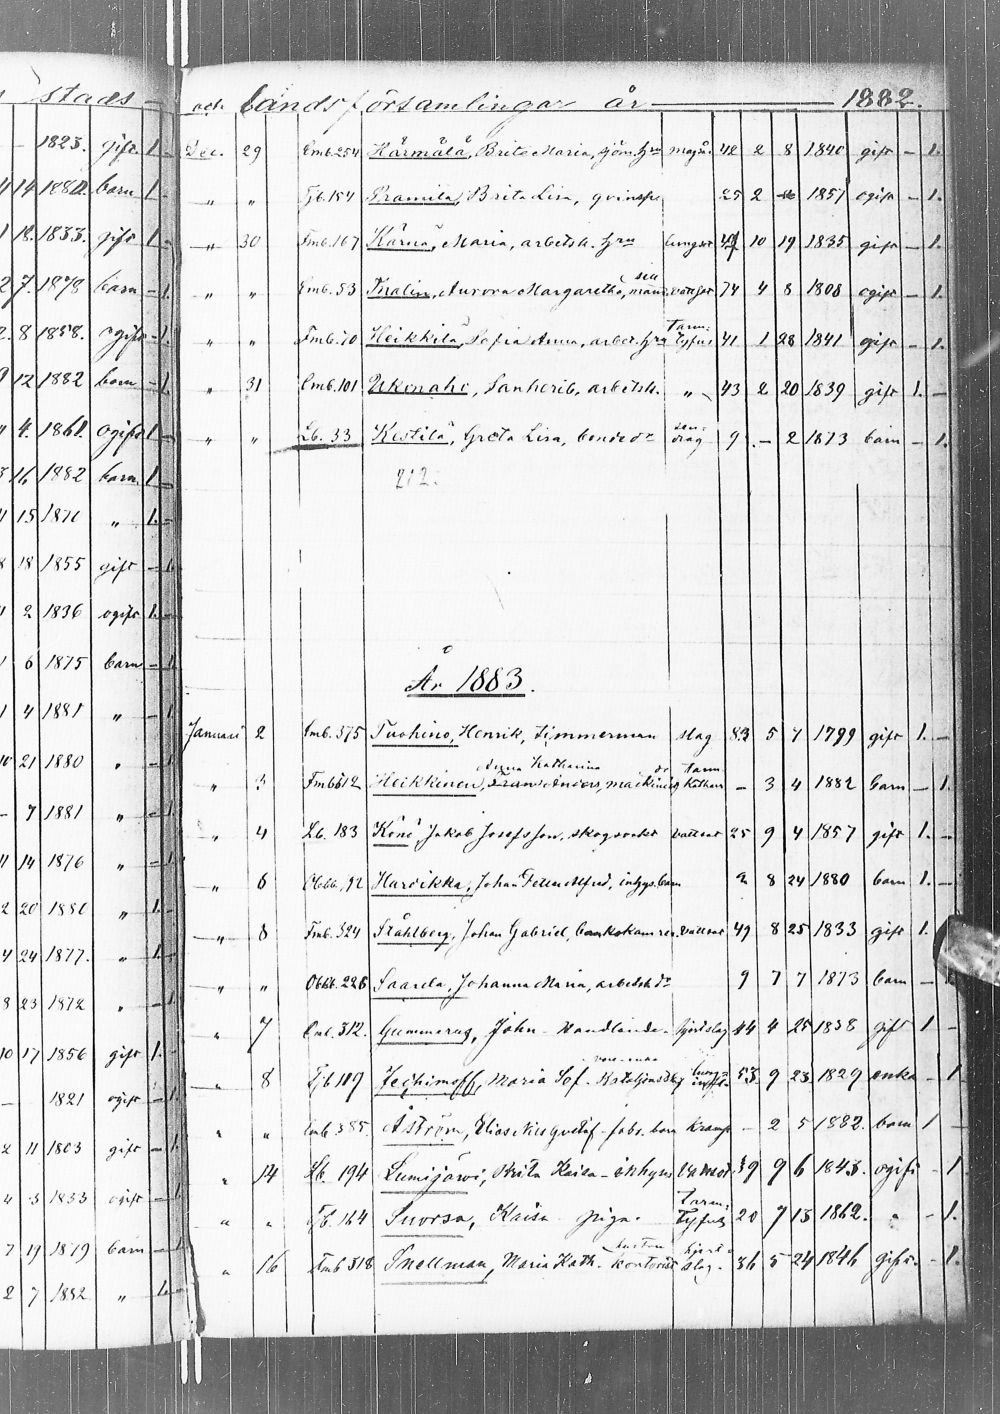 stads –
– 1823. gift 1 –
14 1882. barn 1 –
18. 1833. gift – 1.
7. 1878 barn – 1.
8 1858. ogift – 1.
12 1882 barn – 1.
4. 1861. ogift 1 –
16 1882 barn 1 –
15 1870 „ 1. –
18 1855 gift – 1.
2 1836 ogift 1. –
6 1875 barn – 1
4 1881 „ – 1.
21 1880 „ – 1.
7 1881 „ – 1.
14 1876 „ – 1.
20 1880 „ 1. –
24 1877. „ – 1.
23 1872 „ – 1
17 1856 gift 1. –
1821 ogift – 1.
11 1803 gift – 1.
3 1833 ogift – 1.
19 1879 barn – 1.
7 1882 „ 1. –
och landsförsamlingar år – 1882.
Dec. 29 Emb. 254 Härmälä, Brita Maria, hru 42 2 8 1840 gift – 1.
„ „ Tjb. 154 Pramila, Brita Lisa, qvinsp. 25 2 1857 ogift – 1.
„ 30 Fmb. 167 Kärnä, Maria, arbetsk. hru lungsot 10 19 1835 gift – 1.
„ „ Emb. 53 Thalin, Aurora Margaretha, vattsot 74 4 8 1808 ogift – 1.
„ „ Fmb. 70 Heikkilä, Sofia Anna, arbet. hru tarm-tyfus 41 1 28 1841 gift – 1.
„ 31 Emb. 101 Ukonaho, Sanherib, arbetsk. „ 43 2 20 1839 gift 1. –
„ „ Lb. 33 Kestilä, Greta Lisa, bonde dr 9 – 2 1873 barn – 1.
212.
År 1883.
Januari 2 Emb. 375 Tuohino, Henrik, Timmerman slag 83 5 7 1799 gift 1. –
„ 3 Fmb 612 Heikkinen, Anna Katharina Frans Anders, maskinist dr tarm-kathar – 3 4 1882 barn – 1
„ 4 Lb. 183 Könö, Jakob Josefsson, skogsvakt vattsot 25 9 4 1857 gift 1. –
„ 6 Obbb. 92 Hurvikka, Johan Feten Alfred, inhys. barn 2 8 24 1880 barn 1. –
„ 8 Fmb. 324 Ståhlberg, Johan Gabriel, bankokamrer. vattsot 49 8 25 1833 gift 1.
„ „ Obbb. 226 Saarela, Johanna Maria, arbetsk dr 9 7 7 1873 barn – 1.
„ 7 Emb. 312. Gummerus, John – Handlande – hjertslag 44 4 25 1838 gift 1 –
„ 8 Tjb 109 Jechimoff, Maria Sof. 53 9 23 1829 enka – 1
„ „ Emb 385. Åström, Elias Nils Gustaf – fabr. barn kramp – 2 5 1882. barn 1 –
„ 14 Lb. 194 Lumijärvi, Brita Kaisa – inhyses 39 9 6 1843. ogift – 1
„ „ Tjb. 164 Suorsa, Kaisa – piga – tarm-tyfus 20 7 13 1862. „ – 1.
„ 16 Fmb 318 Snellman, Maria Kath. hustru kontorist hjertslag – 36 5 24 1846 gift. – 1.